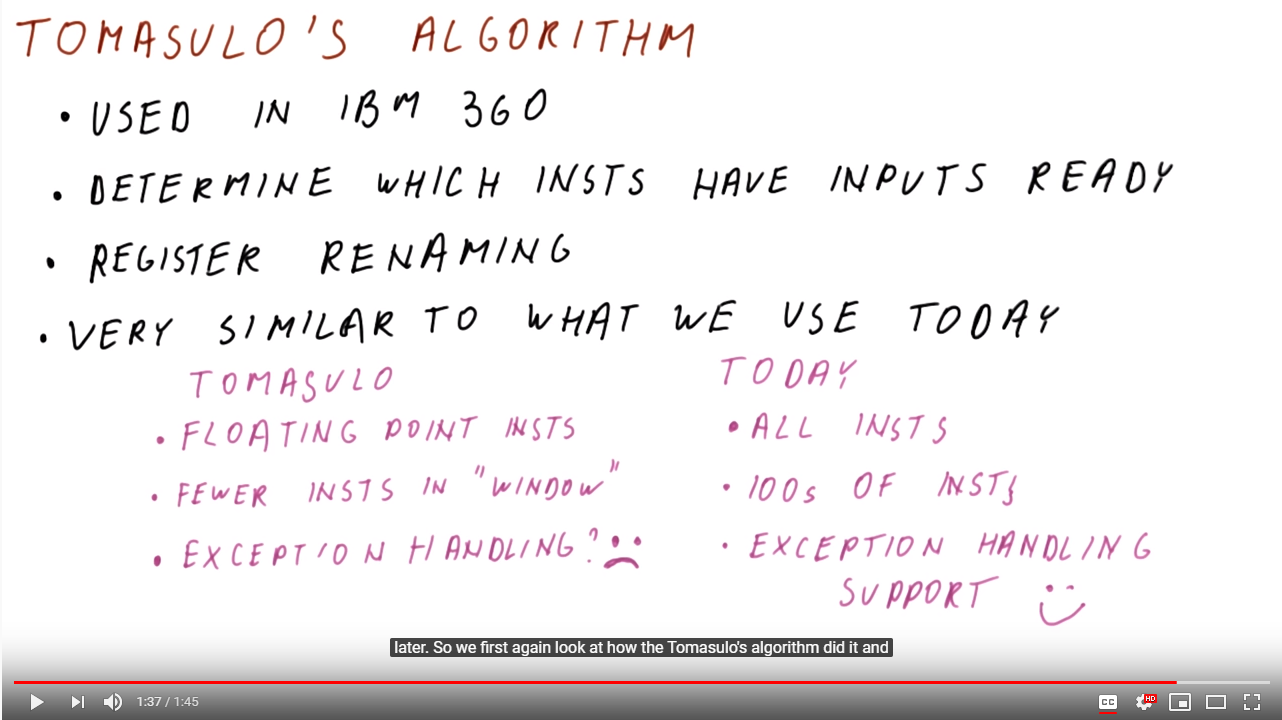 TOMASULO'S ALGORITHM
• USED IN IBM 360
• DETERMINE WHICH INSTS HAVE INPUTS READY
• REGISTER RENAMING
• VERY SIMILAR TO WHAT WE USE TODAY
TOMASULO
• FLOATING POINT INSTS
• FEWER INSTS IN "WINDOW"
• EXCEPTION HANDLING?
TODAY
• ALL INSTS
• 100s OF INSTS
• EXCEPTION HANDLING
SUPPORT
later. So we first again look at how the Tomasulo's algorithm did it and
1:37 / 1:45
CC
HD